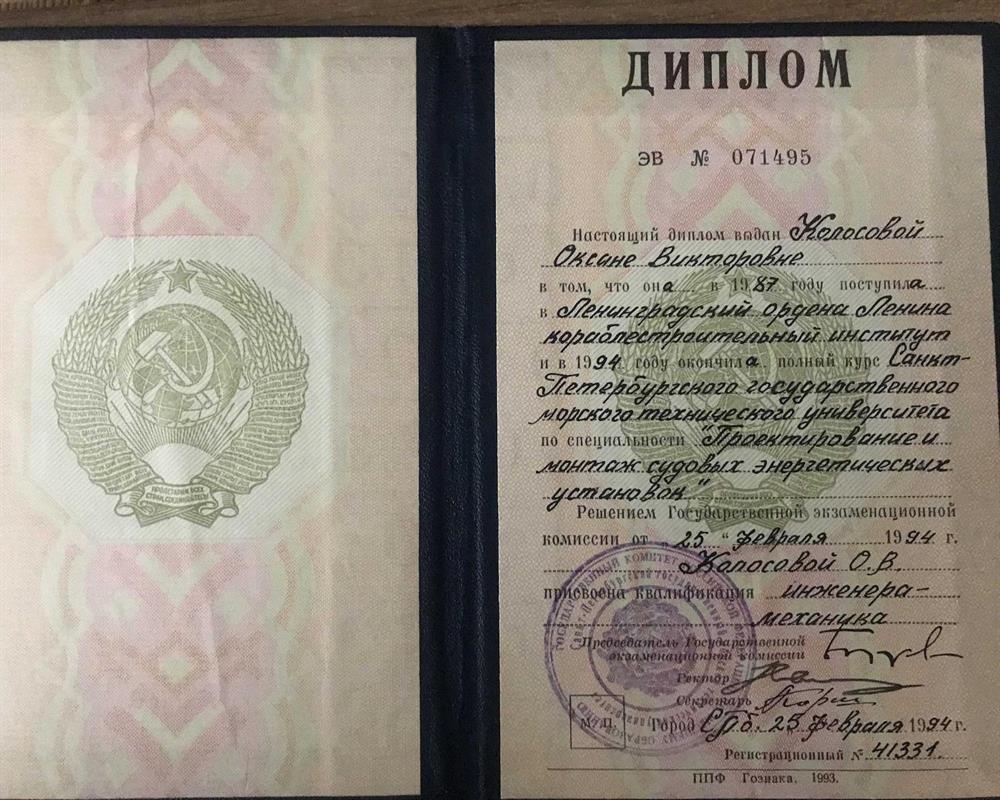 ПРОЛЕТАРИИ ВСЕХ
СТРАН, СОЕДИНЯЙТЕСЬ!
ДИПЛОМ
ЭВ № 071495
Настоящий диплом выдан Колосовой
Оксане Викторовне
в том, что она в 1987 году поступила
в Ленинградский ордена Ленина
кораблестроительный институт
и в 1994 году окончила полный курс Санкт-
Петербургского государственного
морского технического университета
по специальности "Проектирование и
монтаж судовых энергетических
установок"
Решением Государственной экзаменационной
комиссии от „25" февраля 1994 г.
Колосовой О.В.
присвоена квалификация инженера-
механика
Председатель Государственной
экзаменационной комиссии
Ректор
Секретарь
М. П. Город СПб. 25 февраля 1994 г.
Регистрационный № 41331.
ППФ Гознака. 1993.